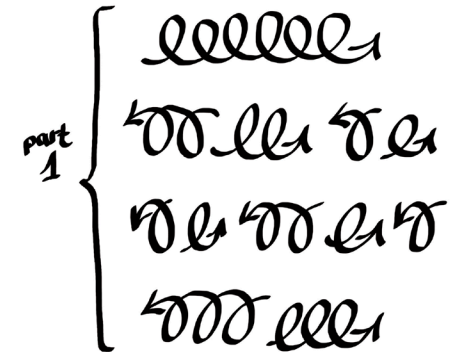 part
1